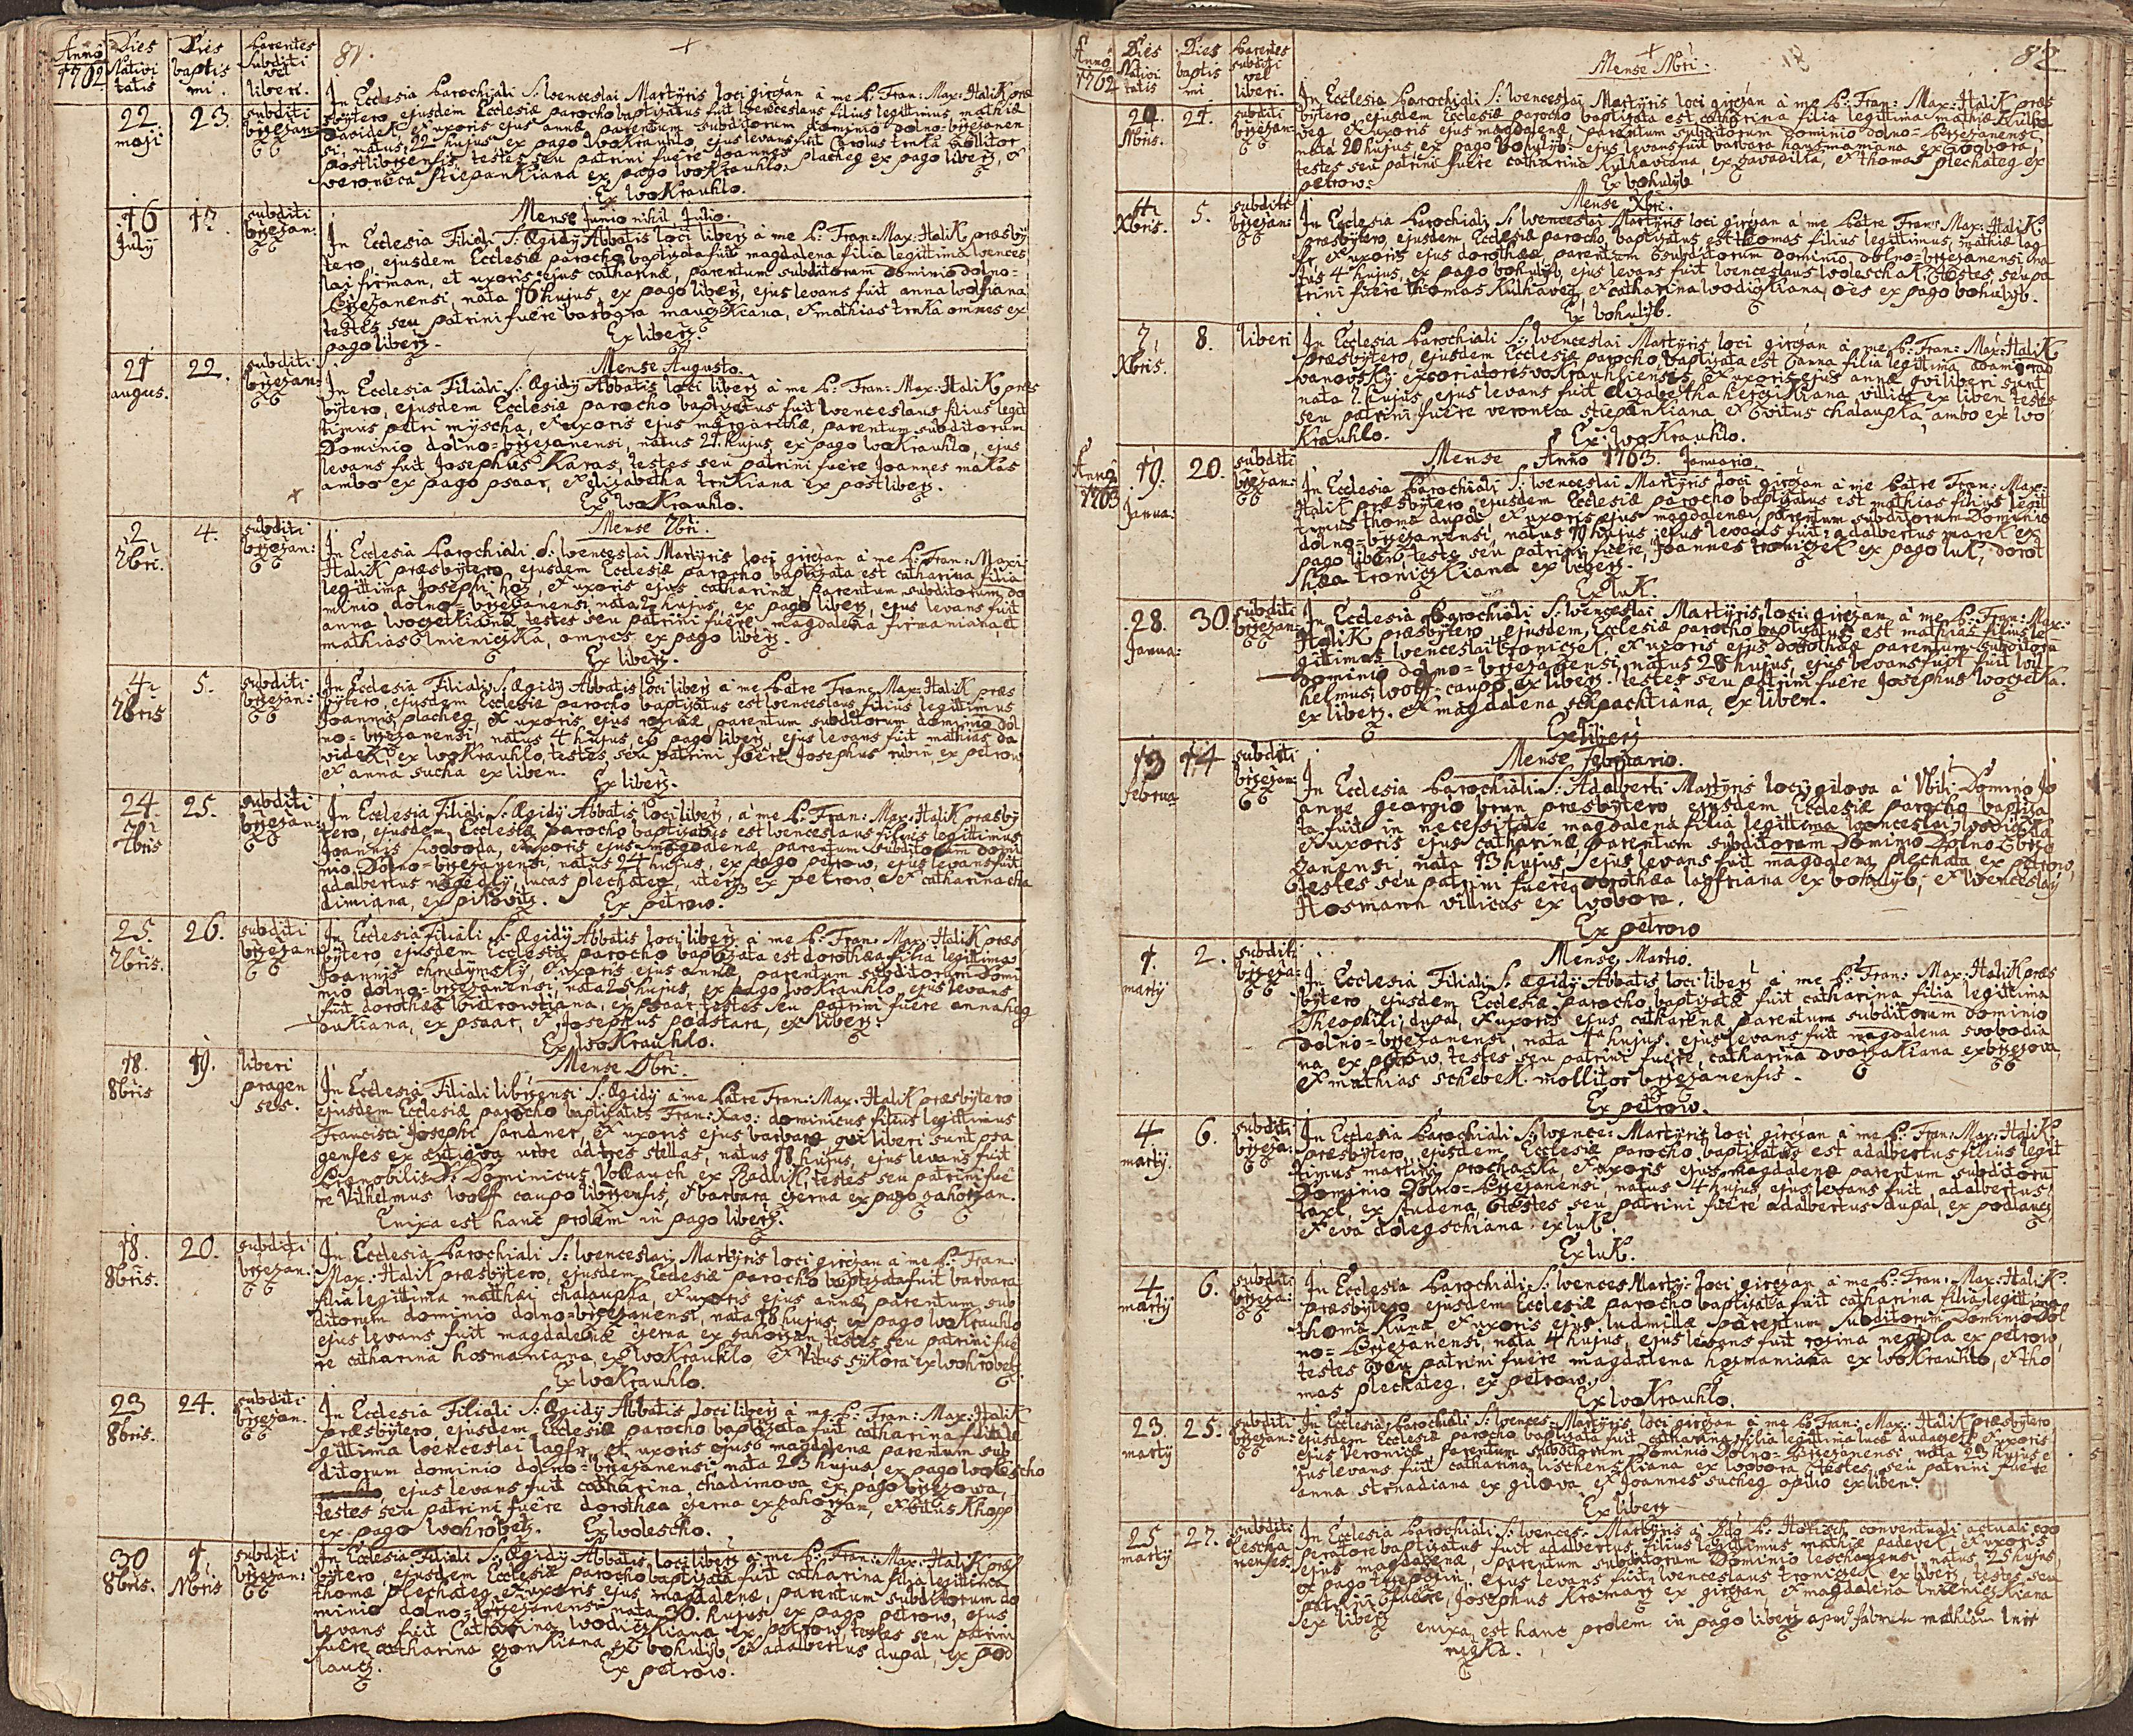 Anno 1762
Dies Nativitatis
Dies baptismi.
Parentes Subditi vel liberi.
81.
22 maji
23.
subditi brzezan:
In Ecclesia Parochiali S: Wenceslai Martyris loci girczan à me P: Fran: Max: Halik præs
bytero, ejusdem Ecclesiæ parocho baptizatus fuit Wenceslaus filius legittimus, mathiæ
Davidek, et uxoris ejus annæ parentum subditorum Dominio dolno-brzezanen
si, natus 22 hujus ex pago Wokrauhlo, ejus levans fuit Carolus trnka molitor
postlibrzensis, testes seu patrini fuere Joannes placheg ex pago liberz, et
veronica stiepankiana ex pago wokrauhlo.
Ex wokrauhlo.
16 July
17.
subditi brzezan:
Mense Junio nihil Julio.
In Ecclesia Filiali S: Ægidy Abbatis loci liberz à me P: Fran: Max: Halik præsby
tero, ejusdem Ecclesiæ parocho baptizata fuit magdalena filia legittima wences
lai firman, et uxoris ejus catharinæ, parentum subditorum Dominio dolno=
brzezanensi, nata 16 hujus, ex pago liberz, ejus levans fuit anna wolfiana
testes seu patrini fuere barbora mauczkiana, et mathias trnka omnes ex
pago liberz.
Ex liberz.
21 augus.
22.
subditi brzezan:
Mense Augusto.
In Ecclesia Filiali S: Ægidy Abbatis loci liberz à me P: Fran: Max: Halik præs
bytero, ejusdem Ecclesiæ parocho baptizatus fuit wenceslaus filius legit
timus petri myscha, et uxoris ejus margarithæ, parentum subditorum
Dominio dolno-brzezanensi, natus 21 hujus, ex pago wokrauhlo, ejus
levans fuit Josephus Karas, testes seu patrini fuere Joannes makas
ambo ex pago psaar, et elizabetha trnkiana ex postliberz.
Ex wokrauhlo.
2 7bri.
4.
subditi brzezan:
Mense 7bri.
In Ecclesia Parochiali S: wenceslai Martyris loci girczan à me P: Fran: Maxi:
Halik præsbytero, ejusdem Ecclesiæ parocho baptizata est catharina filia
legittima Josephi hoz, et uxoris ejus catharinæ parentum subditorum do
minio dolno-brzezanensi, nata 2 hujus, ex pago liberz, ejus levans fuit
anna wogetkiana testes seu patrini fuere magdalena firmaniana, et
mathias lnieniczka, omnes ex pago liberz.
Ex liberz.
4 7bris
5.
subditi brzezan:
In Ecclesia Filiali S: Ægidy Abbatis loci liberz à me Patre Fran: Max: Halik præs
bytero, ejusdem Ecclesiæ parocho baptizatus est wenceslaus filius legittimus
Joannis placheg, et uxoris ejus rozinæ, parentum subditorum dominio dol
no-brzezanensi, natus 4 hujus ex pago liberz, ejus levans fuit mathias da
videk, ex wokrauhlo, testes seu patrini fuere Josephus rubin ex petrow,
et anna sucha ex liben.
Ex liberz.
24. 7bris
25.
subditi brzezan:
In Ecclesia Filiali S: Ægidy Abbatis loci liberz, à me P: Fran: Max: Halik præsby
tero, ejusdem Ecclesiæ parocho baptizatus est wenceslaus filius legittimus
Joannis swoboda, et uxoris ejus magdalenæ, parentum subditorum domi
nio Dolno-brzezanensi, natus 24 hujus, ex pago petrow, ejus levans fuit
adalbertus negedly, lucas plechateg, uterq ex petrow, et catharina cha
dimiana, ex pikowitz.
Ex petrow.
25. 7bris.
26.
subditi brzezan:
In Ecclesia Filiali S: Ægidy Abbatis loci liberz à me P: Fran: Max: Halik præs
bytero ejusdem Ecclesiæ parocho baptizata est dorothæa filia legittima
Joannis chrudymsky, et uxoris ejus annæ, parentum subditorum Domi
nio dolno-brzezanensi, nata 25 hujus, ex pago wokrauhlo, ejus levans
fuit dorothea bietrowtiana, ex psaar, testes seu patrini fuere anna heg
dukiana, ex psaar, et Josephus podstara, ex liberz.
Ex wokrauhlo.
18. 8bris
19.
liberi pragen ses.
Mense 8bri.
In Ecclesia Filiali librzensi S: Ægidy à me Patre Fran: Max: Halik præsbytero
ejusdem Ecclesiæ parocho baptizatus Fran: Xav: dominicus filius legittimus
Francisci Josephi Sandner, et uxoris ejus barbaræ qui liberi sunt pra
genses ex antiqua urbe ad tres stellas, natus 18 hujus, ejus levans fuit
Prænobilis D: Dominicus Vollauch ex Radlik, testes seu patrini fue
re Vilhelmus wolff caupo librzensis, et barbara czerna ex pago zahorzan.
Enixa est hanc prolem in pago liberz.
18. 8bris.
20.
subditi brzezan:
In Ecclesia Parochiali S: wenceslai Martyris loci girczan à me P: Fran:
Max: Halik præsbytero, ejusdem Ecclesiæ parocho baptizata fuit barbara
filia legittima matthæi chalaupka, et uxoris ejus annæ, parentum sub
ditorum dominio dolno-brzezanensi, nata 18 hujus, ex pago wokrauhlo
ejus levans fuit magdalena czerna ex zahorzan, testes seu patrini fue
re catharina hosmaniana, ex wokrauhlo et Vitus sykora ex wohrobetz.
Ex wokrauhlo.
23 8bris.
24.
subditi brzezan.
In Ecclesia Filiali S: Ægidy Abbatis loci liberz à me P: Fran: Max: Halik
præsbytero, ejusdem Ecclesiæ parocho baptizata fuit catharina filia le
gittima wenceslai lagfr, et uxoris ejus magdalenæ parentum sub
ditorum dominio dolno-brzezanensi nata 23 hujus, ex pago wolescho
ejus levans fuit catharina chadimova ex pago brzezowa,
testes seu patrini fuere dorothæa czerna ex zahorzan, et vitus Khopp
ex pago wohrobetz.
Ex wolescho.
30 8bris.
1. Nbris
subditi brzezan:
In Ecclesia Filiali S: Ægidy Abbatis loci liberz à me P: Fran: Max: Halik præs
bytero, ejusdem Ecclesiæ parocho baptizata fuit catharina filia legittima
thomæ plechateg, et uxoris ejus magdalenæ, parentum subditorum do
minio dolno-brzezanensi nata 30 hujus, ex pago petrow, ejus
levans fuit Catharina wodiczkiana ex petrow testes seu patrini
fuere catharina zonkiana ex bohulyb, et adalbertus dupal, ex pod
lautz.
Ex petrow.
Anno 1762
Dies Nativitatis
Dies baptismi
Parentes subditi vel liberi.
Mense Nbri.
82
20. Nbris.
21.
subditi brzezan:
In Ecclesia Parochiali S: wenceslai Martyris loci girczan à me P: Fran: Max: Halik præs
bytero, ejusdem Ecclesiæ parocho baptizata est catharina filia legittima mathiæ Kulha
veg et uxoris ejus magdalenæ, parentum subditorum dominio dolno-brzezanensi,
nata 20 hujus, ex pago bohulyb, ejus levans fuit barbara hausmaniana ex wobora,
testes seu patrini fuere catharina Kulhaviana, ex zavadilka, et thomas plechateg ex
petrow.
Ex bohulyb
4. Xbris.
5.
subditi brzezan:
Mense Xbri.
In Ecclesia Parochiali S: wenceslai Martyris loci girczan à me Patre Fran: Max: Halik
præsbytero, ejusdem Ecclesiæ parocho, baptizatus est thomas filius legittimus, mathiæ lag
fr, et uxoris ejus dorothææ, parentum subditorum dominio dolno-brzezanensi na
tus 4 hujus, ex pago bohulyb, ejus levans fuit wenceslaus woleschak, testes, seu pa
trini fuere thomas Kulhaveg, et catharina wodiczkiana, oes ex pago bohulyb.
Ex bohulyb.
7. Xbris.
8.
liberi
In Ecclesia Parochiali S: wenceslai Martyris loci girczan à me P: Fran: Max: Halik
præsbytero, ejusdem Ecclesiæ parocho, baptizata est anna filia legittima adami rad
vanovsky excoriatoris wokrauhliensis et uxoris ejus annæ qui liberi sunt
nata 7 hujus, ejus levans fuit elizabetha hercziKiana villica ex liben testes
seu patrini fuere veronica stiepankiana et vitus chalaupka ambo ex wo
krauhlo.
Ex: wokrauhlo.
Anno 1763
19. Janua:
20.
subditi brzezan:
Mense Anno 1763. Januario.
In Ecclesia Parochiali S: wenceslai Martyris loci girczan à me Patre Fran: Max:
Halik præsbytero, ejusdem Ecclesiæ parocho baptizatus est mathias filius legit
timus thomæ dupal, et uxoris ejus magdalenæ, parentum subditorum Dominio
dolno-brzezanensi, natus 19 hujus ejus levans fuit adalbertus marek ex
pago liben, testes seu patrini fuere, Joannes troniczek ex pago luk, dorot
hæa troniczkiana ex liberz.
Ex luk.
28. Janua:
30.
subditi brzezan:
In Ecclesia Parochiali S: wenceslai Martyris loci girczan à me P: Fran: Max:
Halik præsbytero, ejusdem Ecclesiæ parocho baptizatus est mathias filius le
gittimus wenceslai troniczek, et uxoris ejus dorothææ parentum subditoru
dominio dolno-brzezanensi, natus 28 hujus, ejus levans fuit fuit wil
helmus wolff caupo ex liberz. testes seu patrini fuere Josephus wogetka
ex liberz. et magdalena schpachtiana, ex liben.
Ex liberz
13 februa
14
subditi brzezan:
Mense februario.
In Ecclesia Parochiali S: Adalberti Martyris loci gilova à Vbili Domino Jo
anne georgio brun præsbytero ejusdem Ecclesiæ parocho baptiza
ta fuit in necessitate magdalena filia legittima wenceslai wodiczka
et uxoris ejus catharinæ parentum subditorum Dominio Dolno brze
zanensi nata 13 hujus, ejus levans fuit magdalena plechata ex petrow,
testes seu patrini fuere dorothæa lagfriana ex bohulyb, et wenceslay
Hosmann villicus ex wobora.
Ex petrow
1. marty
2.
subditi brzeza:
Mense Martio.
In Ecclesia Filiali S: Ægidy Abbatis loci liberz à me P: Fran: Max: Halik præs
bytero, ejusdem Ecclesiæ parocho baptizata fuit catharina filia legittima
Theophili dupal, et uxoris ejus catharinæ parentum subditorum dominio
dolno-brzezanensi, nata 1 hujus, ejus levans fuit magdalena svobodia
na ex petrow, testes seu patrini fuere, catharina dvorzakiana ex brzezova,
et mathias schebek mollitor brzezanensis.
Ex petrow.
4 marty.
6.
subditi brzeza:
In Ecclesia Parochiali S: wence: Martyris loci girczan à me P: Fran: Max: Halik
præsbytero, ejusdem Ecclesiæ parocho, baptizatus est adalbertus filius legit
timus martini prochaska et uxoris ejus magdalenæ parentum subditoru
Dominio Dolno-Brzezanensi, natus 4 hujus, ejus levans fuit adalbertus
taxl, ex studena, testes seu patrini fuere adalbertus dupal, ex podlautz
et eva dolegschiana ex luk.
Ex luk.
4 marty
6.
subditi brzeza:
In Ecclesia Parochiali S: wences Marty: loci girczan à me P: Fran: Max: Halik
præsbytero, ejusdem Ecclesiæ parocho baptizata fuit catharina filia legittima
thomæ Kuna, et uxoris ejus ludmillæ parentum subditorum Dominio Dol
no-Brzezanensi, nata 4 hujus, ejus levans fuit rozina negdla ex petrow,
testes seu patrini fuere magdalena hosmaniana ex wokrauhlo, et tho
mas plechateg, ex petrow.
Ex wokrauhlo.
23. marty
25.
subditi brzezan:
In Ecclesia Parochiali S: wences: Martyris loci girczan à me P: Fran: Max: Halik præsbytero
ejusdem Ecclesiæ parocho baptizata fuit catharina filia legittima lucæ dudaczek et uxoris
ejus veronicæ parentum subditorum Dominio Dolno-Brzezanensi nata 23 hujus e
jus levans fuit catharina lischenskiana ex wobora testes seu patrini fuere
anna strnadiana ex gilova et Joannes sucheg opilio ex liben.
Ex liberz
25 marty
27.
subditi lescha nenses.
In Ecclesia Parochiali S: wences: Martyris à Rdo P: Holzsch conventuali actuali coo
peratore baptizatus fuit adalbertus filius legittimus mathiæ padevet et uxoris
ejus magdalenæ, parentum subditorum Dominio leschanensi, natus 25 hujus,
ex pago trzepczin, ejus levans fuit wenceslaus troniczek ex liberz, testes seu
patrini fuere, Josephus Kramarz ex girczan et magdalena lnieniczkiana
ex liberz enixa est hanc prolem in pago liberz apud fabrum mathiam lnie
niczka.